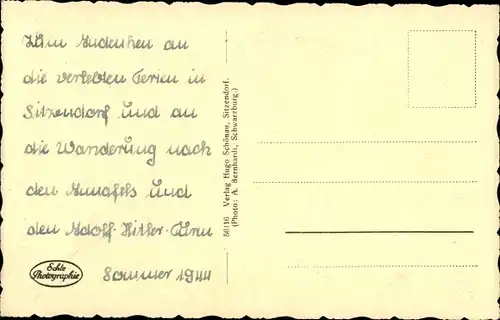 Zum Andenken an
die verlebten Ferien in
Sitzendorf und an
die Wanderung nach
den und
den Adolf-Hitler-Turm
Sommer 1944
Echte
Photographie
66116 Verlag Hugo Schönau, Sitzendorf.
(Photo: A. Bernhardt, Schwarzburg.)